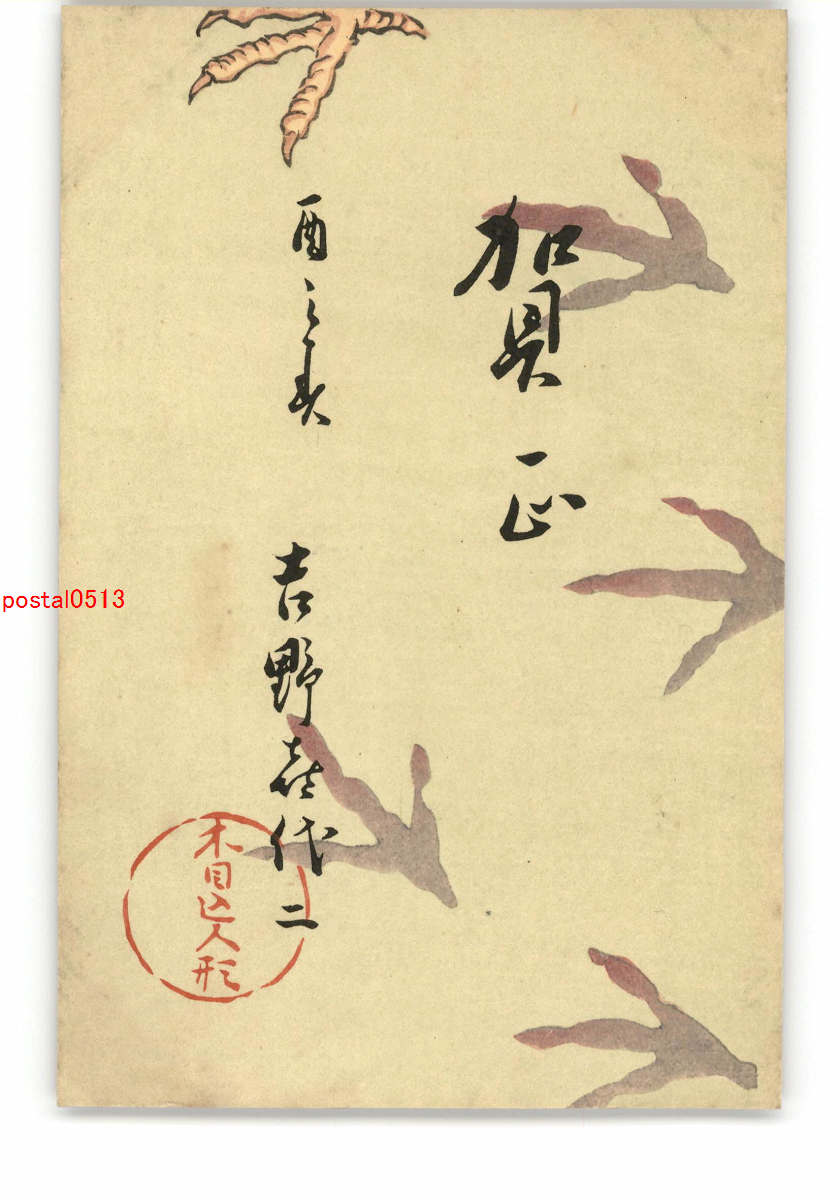 賀正
酉之春
吉野喜代二
木目込人形
postal0513